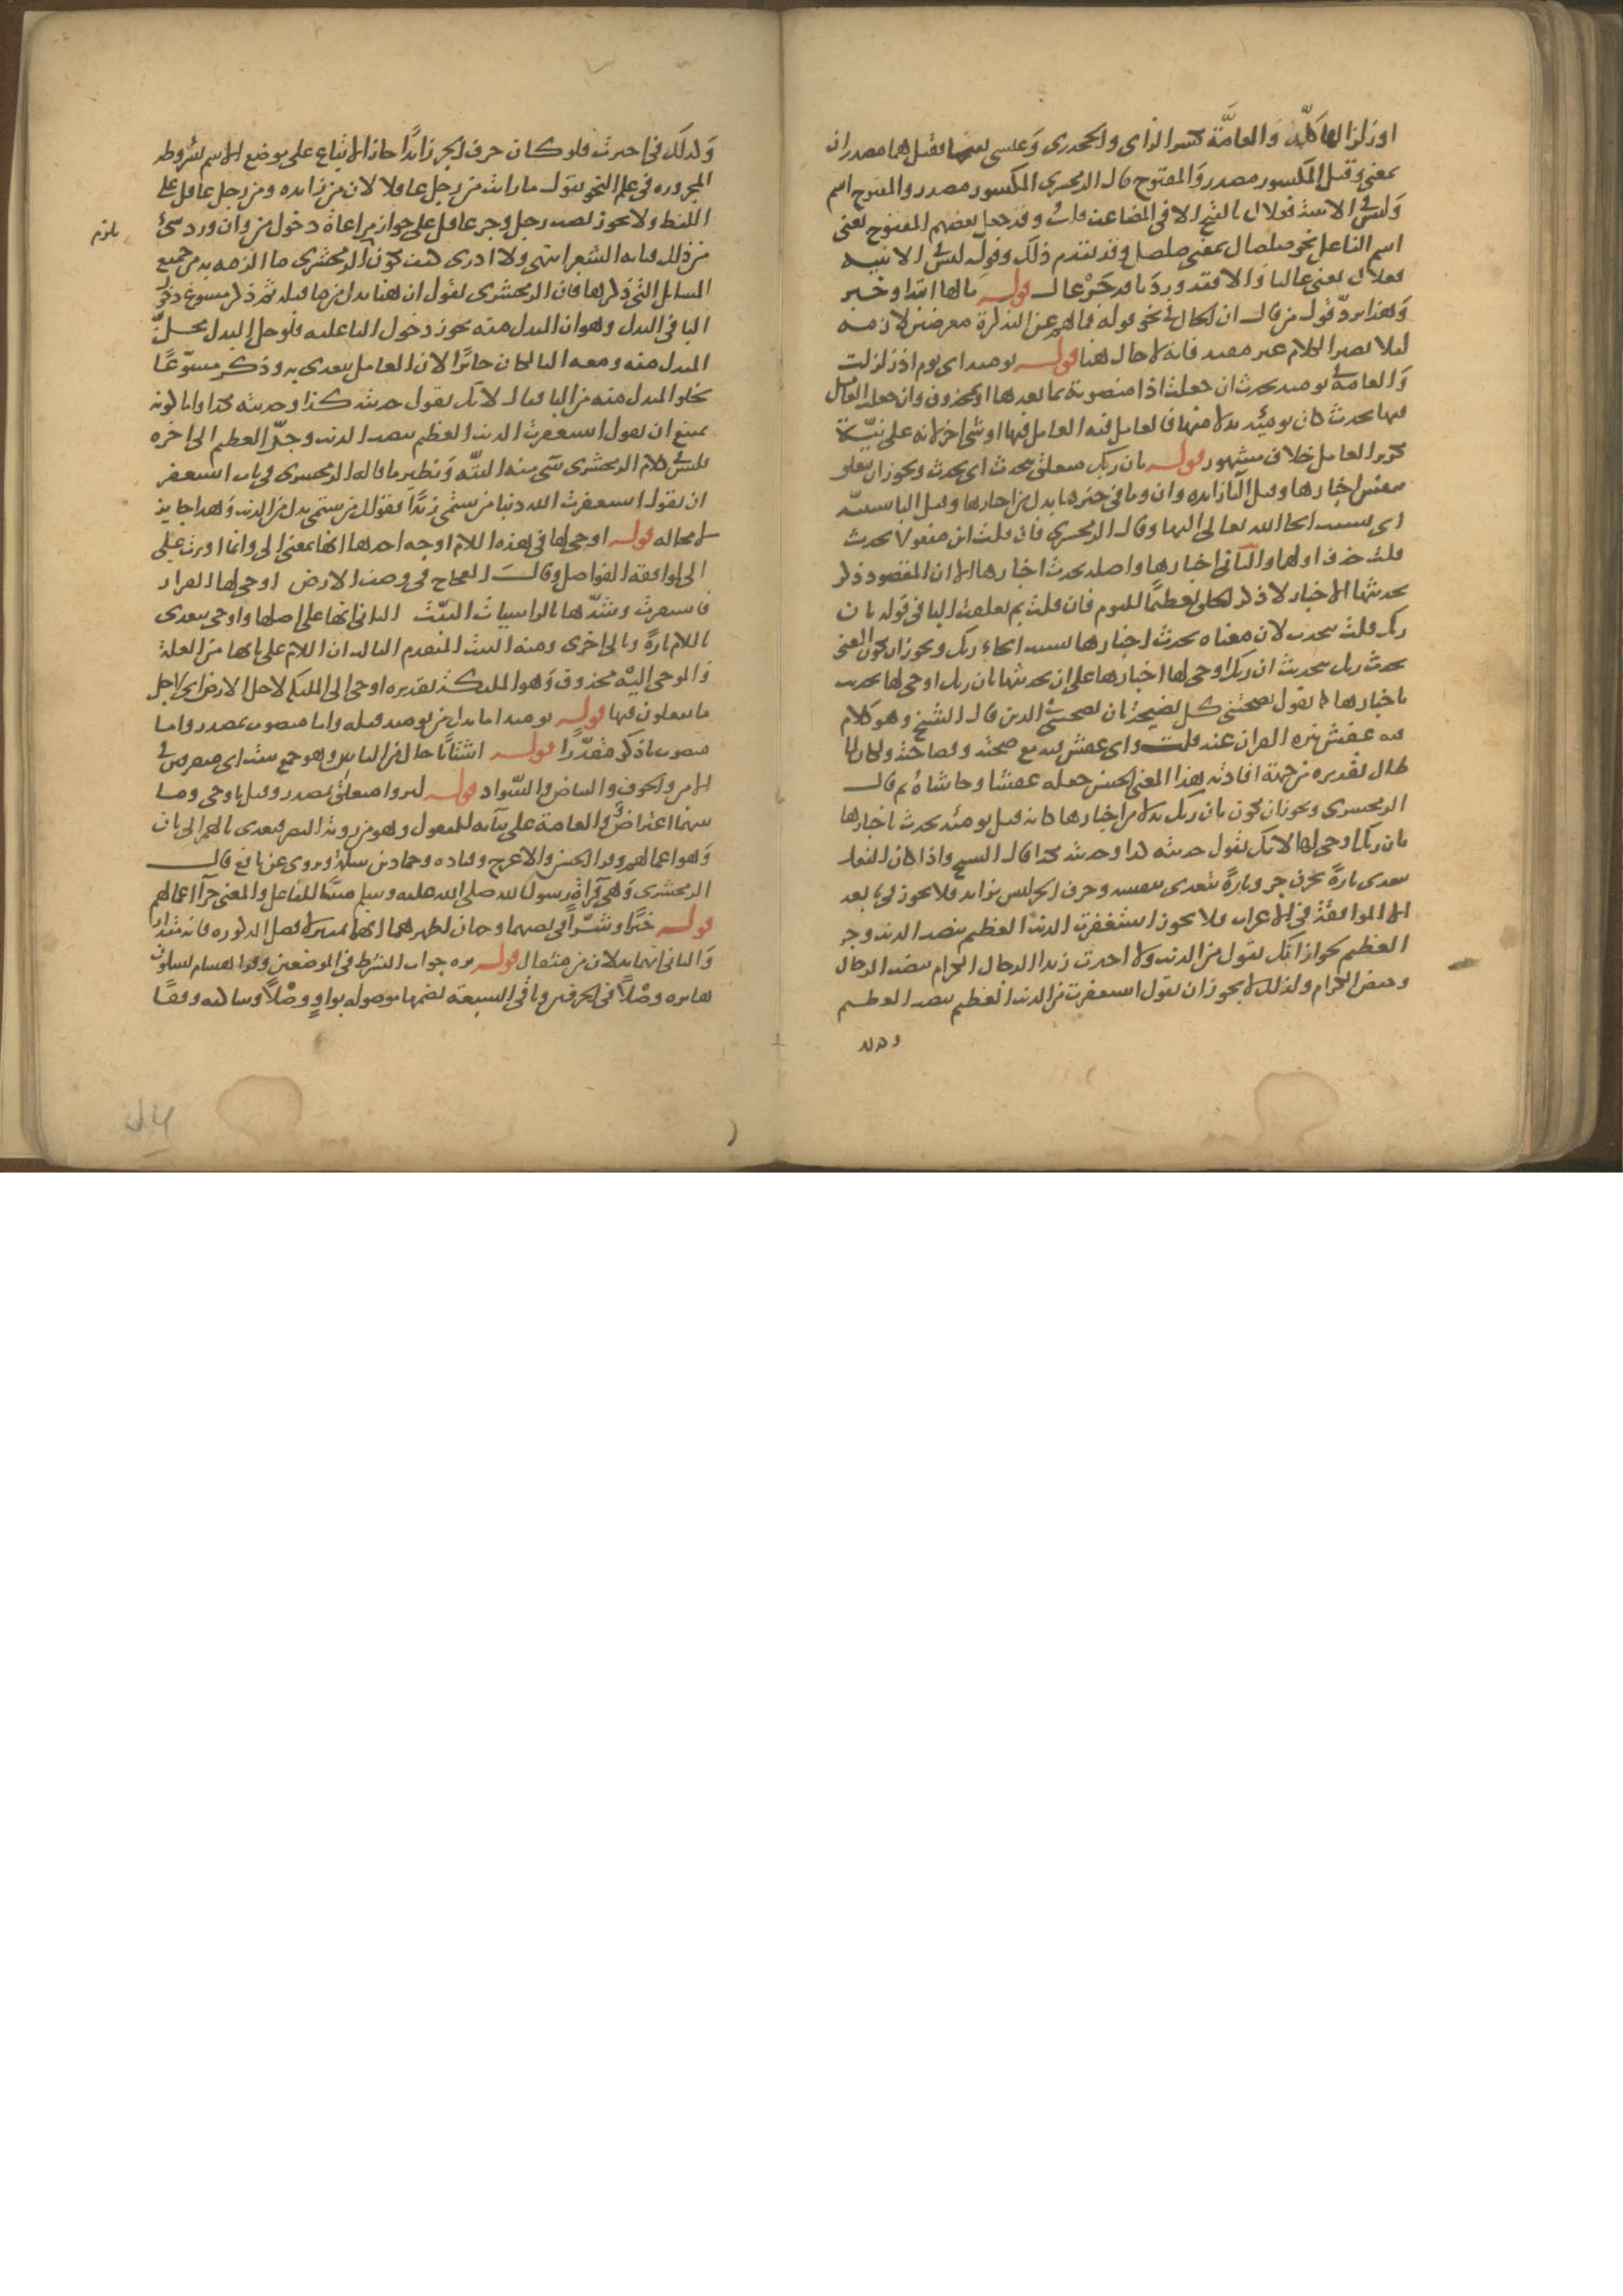 او زلزالها كله والعامة بكسر الزاي والجحدري وعيسى بفتحها فقيل هما مصدران
بمعنى وقيل المكسور مصدر والمفتوح قال الزمخشري المكسور مصدر والمفتوح اسم
وليس في الابنية فعلال بالفتح الا في المضاعف قلت وقد جعل بعضهم المفتوح بمعنى
اسم الفاعل نحو صلصال بمعنى مصلصل وقد تقدم ذلك وقوله ليس في الابنيه
فعلال يعني غالبا والا فقد ورد ناقه خزعال قوله مالها ابتدا وخبر
وهذا يرد قول من قال ان الحال في نحو قوله فما لهم عن التذكرة معرضين لازمه
ليلا يصير الكلام غير مفيد فانه لا حال هنا قوله يومئذ اي يوم اذ زلزلت
والعامل في يومئذ تحدث ان جعلت اذا منصوبة بما بعدها او بمحذوف وان جعلت العامل
فيها تحدث كان يومئذ بدلا منها فالعامل فيه العامل فيها او شي اخر لانه على نية
تكرير العامل خلاف مشهور قوله بان ربك متعلق بتحدث اي تحدث ويجوز ان يتعلق
بنفس اخبارها وقيل البا زايده وان وما في حيزها بدل من اخبارها وقيل البا سببية
اي بسبب ايحا الله تعالى اليها وقال الزمخشري فان قلت اين مفعولا تحدث
قلت حذف اولهما والثاني اخبارها واصله تحدث اخبارها الا ان المقصود ذكر
تحديثها الاخبار لا ذكر الخلق تعظيما لليوم فان قلت بم تعلقت البا في قوله بان
ربك قلت بتحدث لان معناه تحدث اخبارها بسبب ايحاء ربك ويجوز ان يكون المعنى
تحدث ربك بتحديث ان ربك اوحى لها اخبارها على ان تحديثها بان ربك اوحى لها تحديث
باخبارها كما تقول نصحتني كل نصيحة بان نصحتني في الدين قال الشيخ وهو كلام
فيه عفش ينزه القران عنه قلت واي عفش فيه مع صحته وفصاحته ولكن لما
طال تقديره من جهة افادته هذا المعنى الحسن جعله عفشا وحاشاه ثم قال
الزمخشري ويجوز ان يكون بان ربك بدلا من اخبارها كانه قيل يومئذ تحدث باخبارها
بان ربك اوحى لها لانك تقول حدثته كذا وحدثته بكذا قال الشيخ واذا كان الفعل
يتعدى تارة بحرف جر وتارة يتعدى بنفسه وحرف الجر ليس بزايد فلا يجوز في تابعه
الا الموافقة في الاعراب فلا يجوز استغفرت الذنب العظيم بنصب الذنب وجر
العظيم لجواز انك تقول من الذنب ولا اخترت زيدا الرجال الكرام بنصب الرجال
وخفض الكرام وكذلك لا يجوز ان تقول استغفرت من الذنب العظيم بنصب العظيم
وكذلك
وكذلك في اخترت فلو كان حرف الجر زائدا جاز الاتباع على موضع الاسم بشروطه
المحررة في علم النحو تقول ما رايت من رجل عاقلا لان من زايده ومن رجل عاقل على
اللفظ ولا يجوز نصب رجل وجر عاقل على جواز مراعاة دخول من وان ورد شئ
من ذلك فبابه الشعر انتهى ولا ادري كيف يكون الزمخشري ما الزمه به من جميع
يلزم
المسايل التي ذكرها فان الزمخشري يقول ان هنا بدل من ما قبله ثم ذكر مسوغ دخول
البا في البدل وهو ان المبدل منه يجوز دخول البا عليه فلو حل البدل محل
المبدل منه ومعه البا لكان جائزا لان العامل يتعدى به وذكر مسوغا
يخلو المبدل منه من البا فقال لانك تقول حدثته كذا وحدثته بكذا واما كونه
يمتنع ان يقول استغفرت الذنب العظيم بنصب الذنب وجر العظيم الى اخره
فليس في كلام الزمخشري شي منه البتة ونظير ما قاله الزمخشري في باب استغفر
ان تقول استغفرت الله ذنبا من شتمي زيدا فقولك من شتمي بدل من الذنب وهذا جايز
لا محاله قوله اوحى لها في هذه اللام اوجه احدها انها بمعنى الى وانما اوثرت على
الى لموافقة الفواصل وقال العجاج في وصف الارض اوحى لها القرار
فاستقرت وشدها بالراسيات الثبت الثاني انها على اصلها واوحى يتعدى
باللام تارة وبالى اخرى ومنه البيت المتقدم الثالث ان اللام على بابها من العلة
والموحى اليه محذوف وهو الملائكة تقديره اوحى الى الملائكة لاجل الارض اي لاجل
ما يفعلون فيها قوله يومئذ اما بدل من يومئذ قبله واما منصوب بيصدر واما
منصوب باذكر مقدرا قوله اشتاتا حال من الناس وهو جمع شت اي متفرقين في
الامن والخوف والبياض والسواد قوله ليروا متعلق بيصدر وقيل باوحى وما
بينهما اعتراض والعامة على بنائه للمفعول وهو من رؤية البصر فتعدى بالهمز الى ثان
وهو اعمالهم وقرا الحسن والاعرج وقتاده وحماد بن سلمة وتروى عن نافع قال
الزمخشري وهي قراءة رسول الله صلى الله عليه وسلم مبنيا للفاعل والمعنى جزا اعمالهم
قوله خيرا وشرا في نصبهما وجهان اظهرهما انها تمييز لا فصل المذكوره فانه مقدار
والثاني انهما بدلان من مثقال قوله يره جواب الشرط في الموضعين وقرا هشام بسكون
هايره وصلا في الحرفين وباقي السبعة بضمها موصوله بواو وصلا وساكنه وقفا